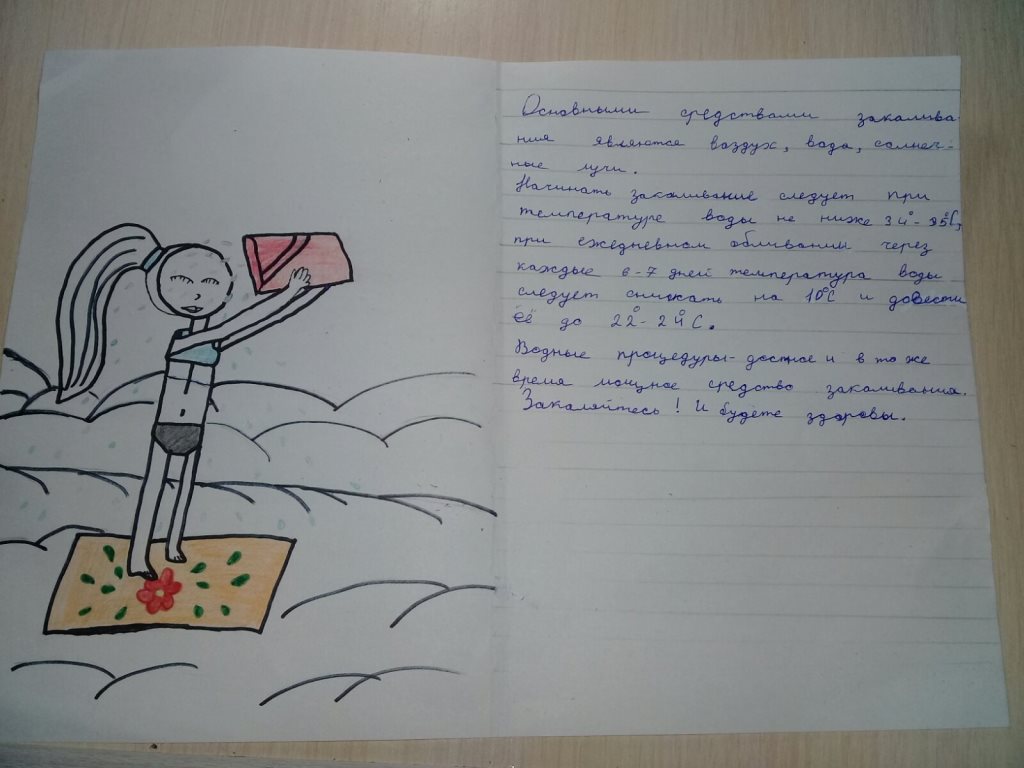 Основными средствами закалива-
ния являются воздух, вода, солнеч-
ные лучи.
Начинать закаливание следует при
температуре воды не ниже 34°-35°С,
при ежедневном обливании через
каждые 6-7 дней температура воды
следует снижать на 10°С и довести
её до 22°-24°С.
Водные процедуры- достное и в то же
время мощное средство закаливания.
Закаляйтесь! И будете здоровы.